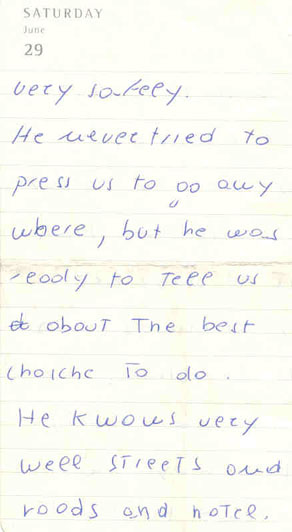 SATURDAY
June
29
very safely.
He never tried to
press us to go any
where, but he was
ready to Tell us
about The best
choichc To do.
He Kwows very
well sTreeTs and
roods and hotel.